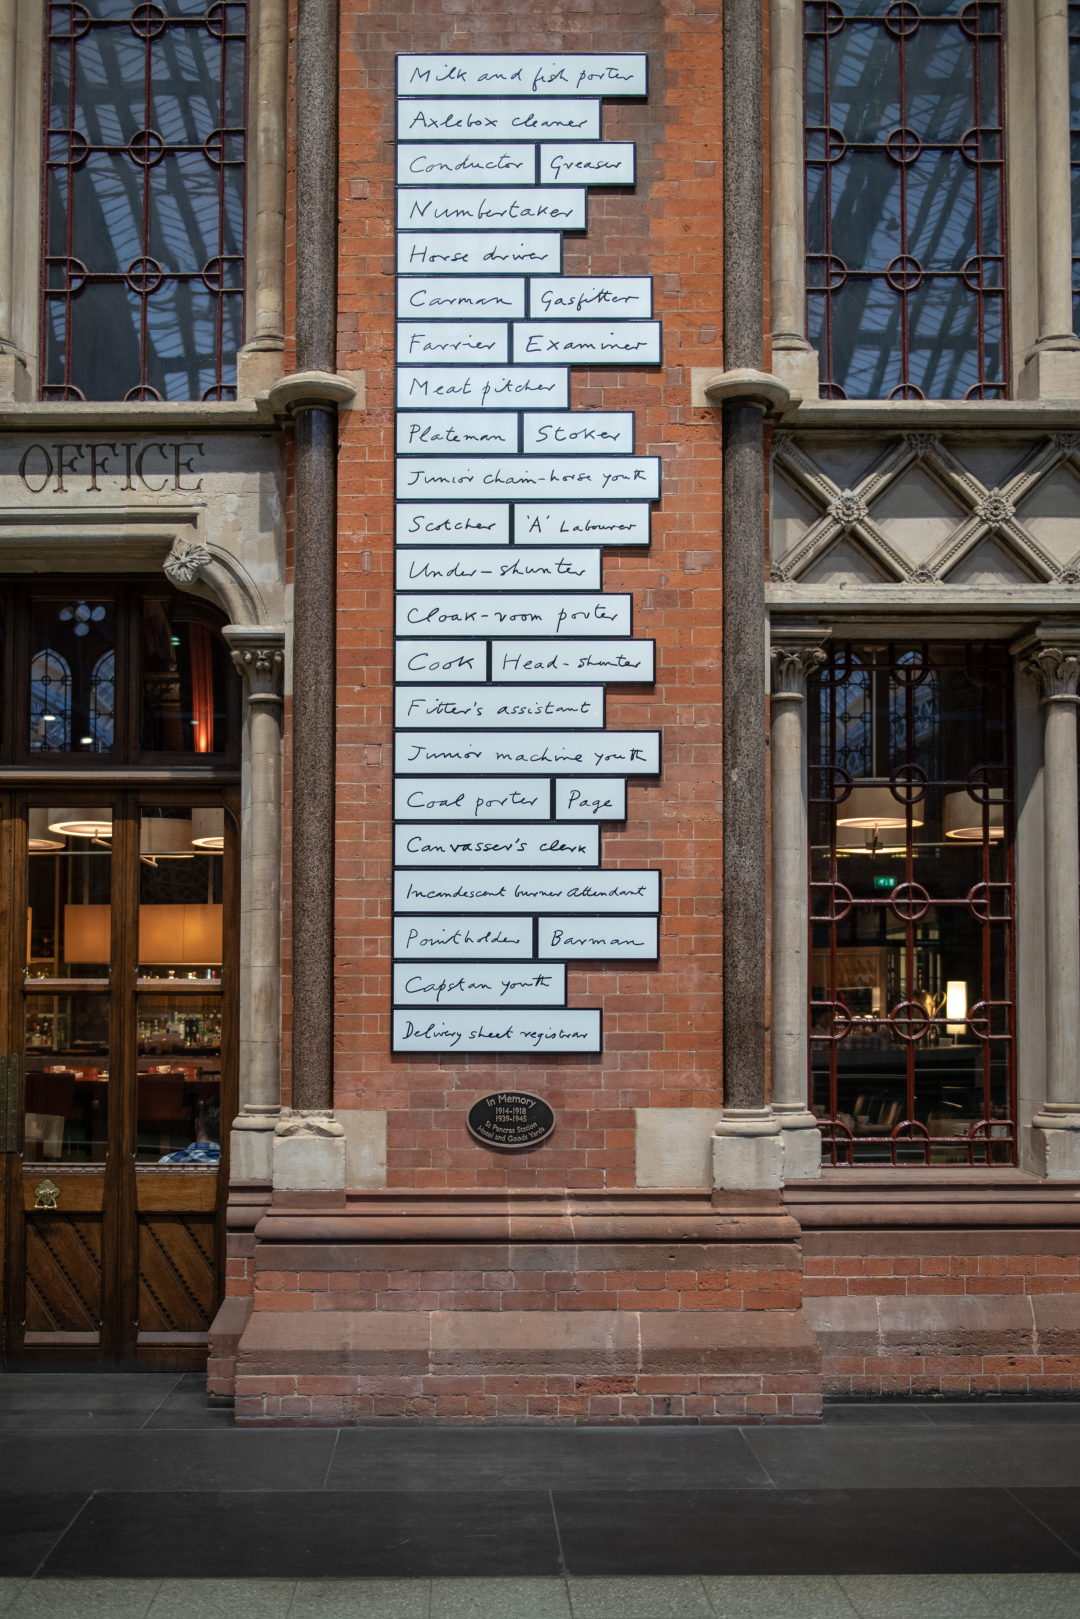 Milk and fish porter
Axlebox cleaner
Conductor Greaser
Numbertaker
Horse driver
Carman Gasfitter
Farrier Examiner
Meat pitcher
OFFICE
Plateman Stoker
Junior chain-horse youth
Scotcher 'A' Labourer
Under-shunter
Cloak-room porter
Cook Head-shunter
Fitter's assistant
Junior machine youth
Coal porter Page
Canvasser's clerk
Incandescent burner attendant
Pointholder Barman
Capstan youth
Delivery sheet registrar
In Memory
1914-1918
1939-1945
St Pancras Station
Hotel and Goods Yards